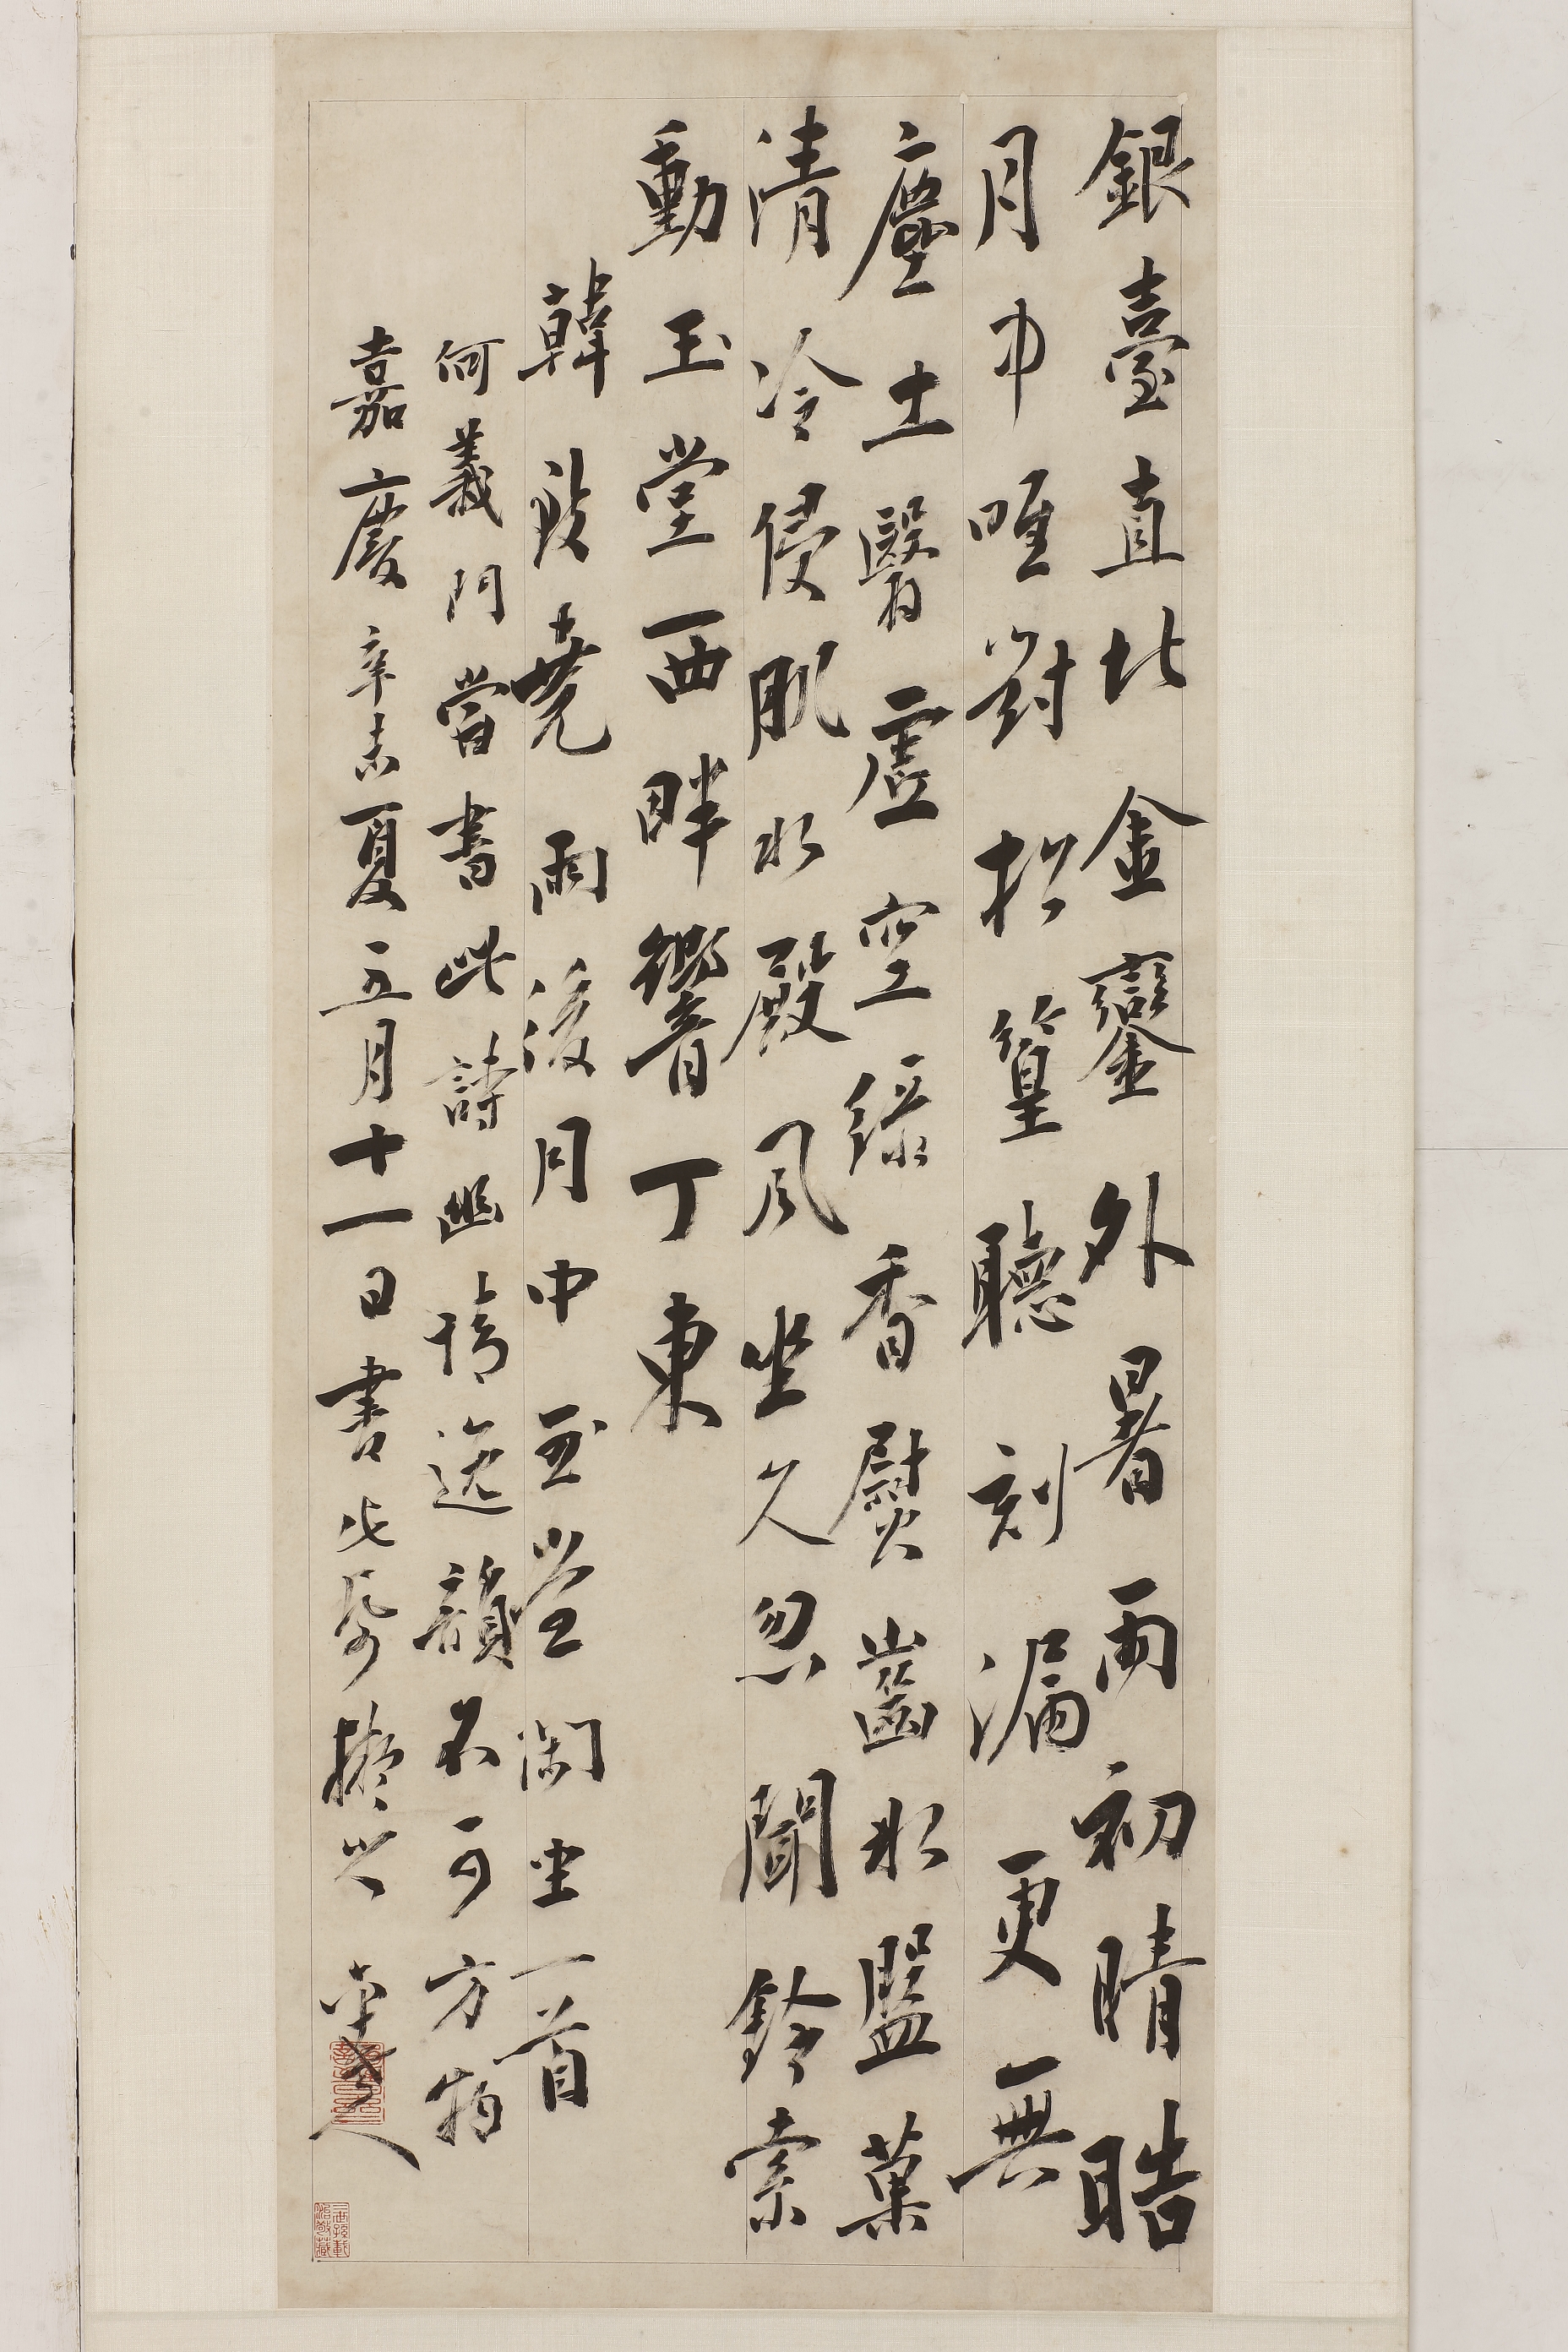 銀臺直北金鑾外暑雨初晴皓
月中唯對松篁聽刻漏更無
塵土翳虛空綠香熨齒冰盤菓
清冷侵肌水殿風坐久忽聞鈴索
動玉堂西畔響丁東
韓致堯雨後月中玉堂閑坐一首
何義門嘗書此詩幽情逸韻不可方物
嘉慶辛未夏五月十一日書此